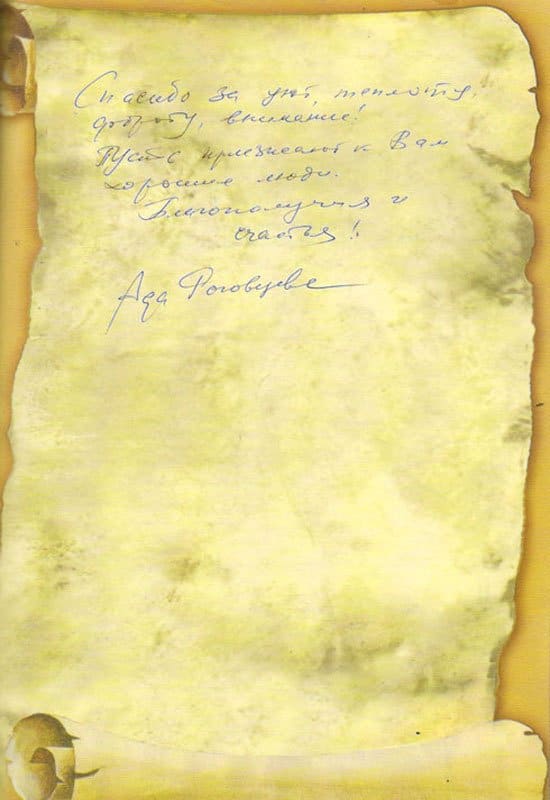 Спасибо за уют, теплоту,
доброту, внимание!
Пусть приезжают к Вам
хорошие люди.
Благополучия и
счастья!
Ада Роговцева